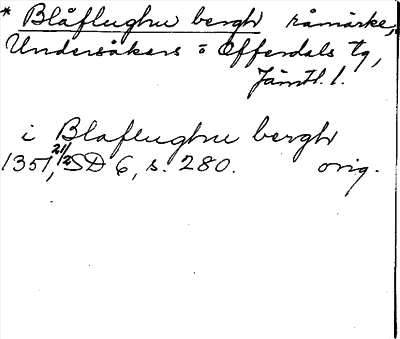 * Blåflughu berghr råmärke,
Undersåkers o Offerdals tg,
Jämtl. l.
i Blaflughu berghr
1351, 21/2 SD 6, s. 280. orig.